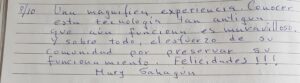 8/10 Una magnifica experiencia. Conocer
esta tecnología tan antigua,
que aún funciona es maravilloso.
Y sobre todo, el esfuerzo de su
comunidad por preservar su
funcionamiento. Felicidades!!!
Mury Sahagun